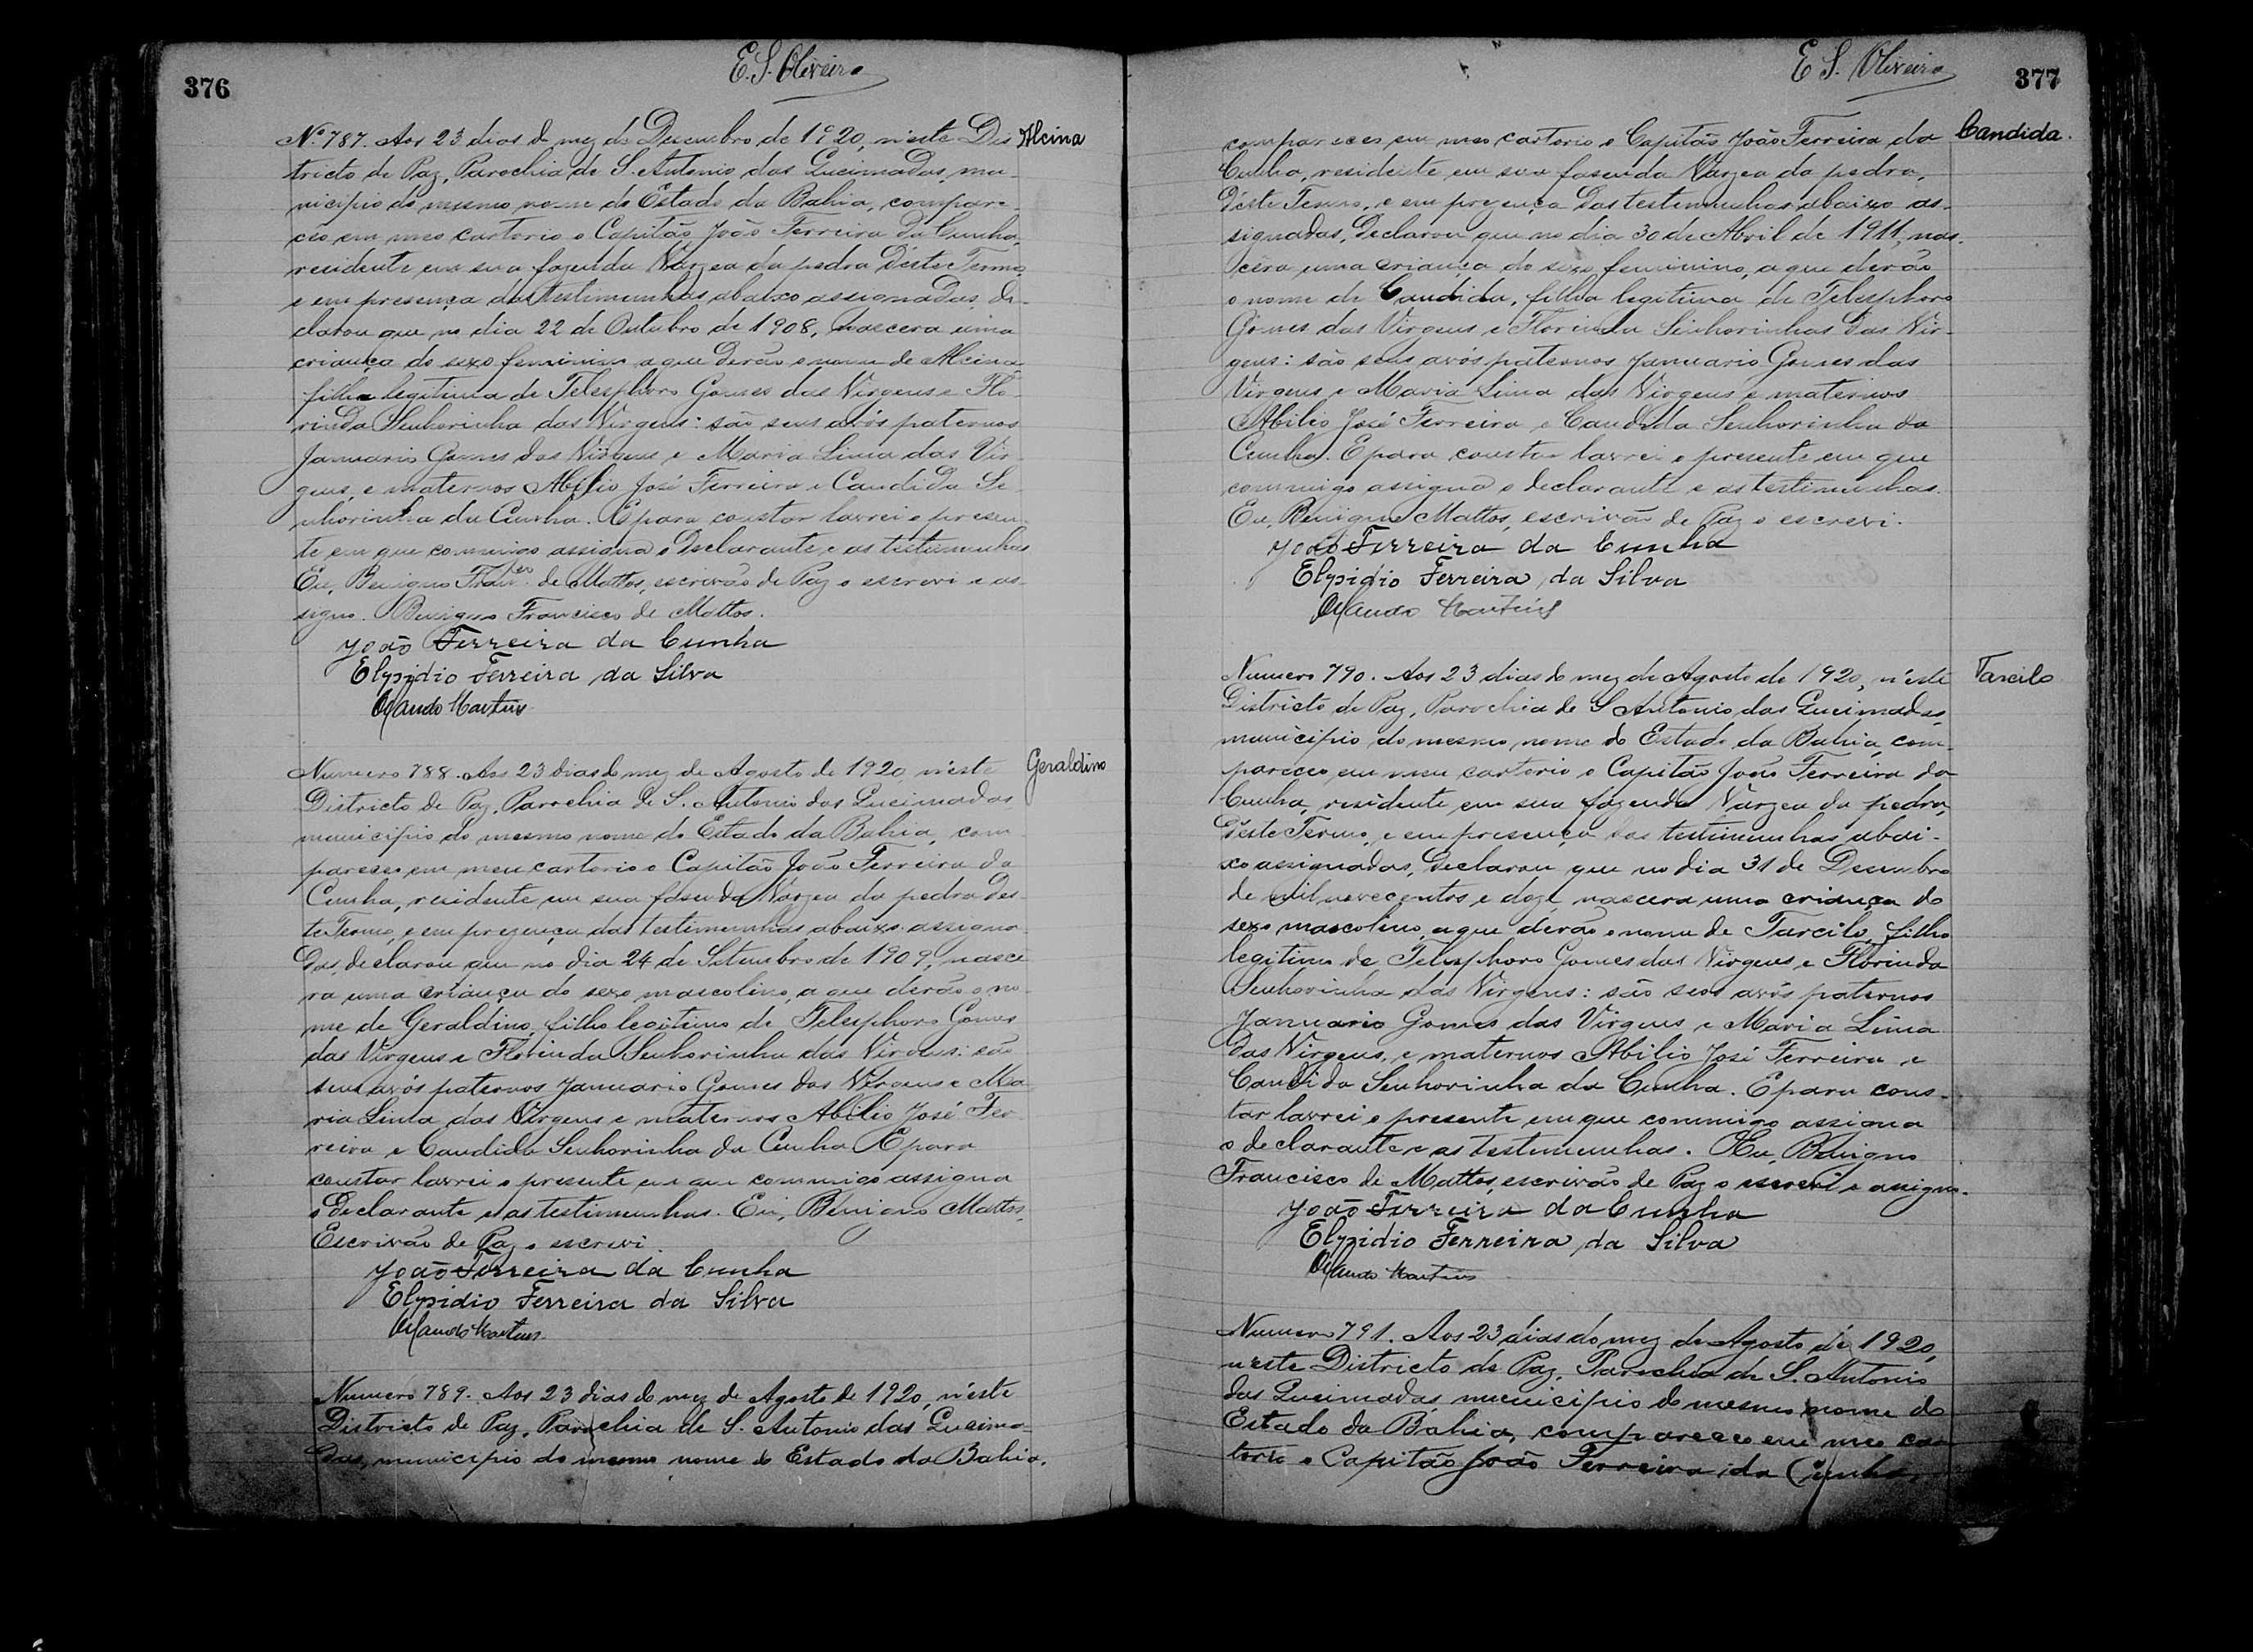 376
E. S. Oliveira
Nº 787. Aos 23 dias do mez de Dezembro de 1920, n'este Dis
Alcina
tricto de Paz, Parochia de S. Antonio das Queimadas, mu-
nicipio do mesmo nome do Estado da Bahia, compare-
ceo em meo cartorio o Capitão João Ferreira da Cunha,
residente em sua fazenda Vargea da pedra d'este Termo
e em presença das testemunhas abaixo assignadas, de-
clarou que no dia 22 de Outubro de 1908, nascera uma
criança do sexo feminino a que derão o nome de Alcina
filha legitima de Telesphoro Gomes das Virgens e Flo-
rinda Senhorinha das Virgens: são seus avós paternos
Januario Gomes das Virgens e Maria Lima das Vir-
gens, e maternos Abilio José Ferreira e Candida Se-
nhorinha da Cunha. E para constar lavrei o presen-
te em que commigo assigna o declarante e as testemunhas
Eu, Benigno Franco de Mattos, escrivão de Paz o escrevi e as-
signo. Benigno Francisco de Mattos.
João Ferreira da Cunha
Elpidio Ferreira da Silva
Orlando Martins
Numero 788. Aos 23 dias do mez de Agosto de 1920, n'este
Geraldino
Districto de Paz, Parochia de S. Antonio das Queimadas
municipio do mesmo nome do Estado da Bahia, com-
pareceo em meu cartorio o Capitão João Ferreira da
Cunha, residente em sua fasenda Vargea da pedra des-
te Termo, e em prezença das testemunhas abaixo assigna-
das, declarou que no dia 24 de Setembro de 1909, nasce-
ra uma criança do sexo mascolino, a que derão o no-
me de Geraldino, filho legitimo de Telesphoro Gomes
das Virgens e Florinda Senhorinha das Virgens: são
seus avós paternos Januario Gomes das Virgens e Ma-
ria Lima das Virgens e maternos Abilio José Fer-
reira e Candida Senhorinha da Cunha E para
constar lavrei o presente em que commigo assigna
o declarante e as testemunhas. Eu, Benigno Mattos,
Escrivão de Paz o escrevi.
João Ferreira da Cunha
Elpidio Ferreira da Silva
Orlando Martins
Numero 789. Aos 23 dias do mez de Agosto de 1920, n'este
Districto de Paz, Parochia de S. Antonio das Queima-
das, municipio do mesmo nome do Estado da Bahia,
E. S. Oliveira
377
compareceo em meo cartorio o Capitão João Ferreira da
Candida.
Cunha, residente em sua fasenda Vargea da pedra,
d'este Termo, e em prezença das testemunhas abaixo as-
signadas, declarou que no dia 30 de Abril de 1911, nas-
cera uma criança do sexo feminino, a que derão
o nome de Candida, filha legitima de Telesphoro
Gomes das Virgens e Florinda Senhorinhas das Vir-
gens: são seus avós paternos Januario Gomes das
Virgens e Maria Lima das Virgens e maternos
Abilio José Ferreira e Candida Senhorinha da
Cunha. E para constar lavrei o presente em que
commigo assigna o declarante e as testemunhas.
Eu, Benigno Mattos, escrivão de Paz o escrevi.
João Ferreira da Cunha
Elpidio Ferreira da Silva
Orlando Martins
Numero 790. Aos 23 dias do mez de Agosto de 1920, n'este
Tarcilo
Districto de Paz, Parochia de S Antonio das Queimadas,
municipio do mesmo nome do Estado da Bahia, com-
pareceo em meu cartorio o Capitão João Ferreira da
Cunha, residente em sua fazenda Vargea da pedra,
d'este Termo, e em presença das testemunhas abai-
xo assignadas, declarou que no dia 31 de Dezembro
de mil novecentos e doze, nascera uma criança do
sexo mascolino, a que derão o nome de Tarcilo, filho
legitimo de Telesphoro Gomes das Virgens e Florinda
Senhorinha das Virgens: são seos avós paternos
Januario Gomes das Virgens e Maria Lima
das Virgens, e maternos Abilio José Ferreira e
Candida Senhorinha da Cunha. E para cons-
tar lavrei o presente em que commigo assigna
o declarante e as testemunhas. Eu, Benigno
Francisco de Mattos, escrivão de Paz o escrevi e assigno.
João Ferreira da Cunha
Elpidio Ferreira da Silva
Orlando Martins
Numero 791. Aos 23 dias do mez de Agosto de 1920,
n'este Districto de Paz, Parochia de S. Antonio
das Queimadas, municipio do mesmo nome do
Estado da Bahia, compareceo em meo car
torio o Capitão João Ferreira da Cunha,